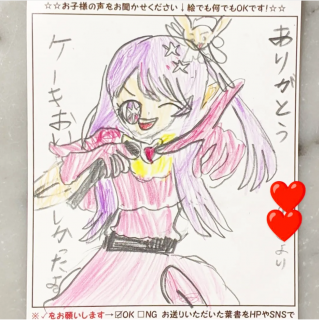 ☆☆お子様の声をお聞かせください↓絵でも何でもOKです!☆☆
ありがとう
ケーキおいしかったです
より
※✓をお願いします→☑OK ☐NG お送りいただいた葉書をHPやSNSで